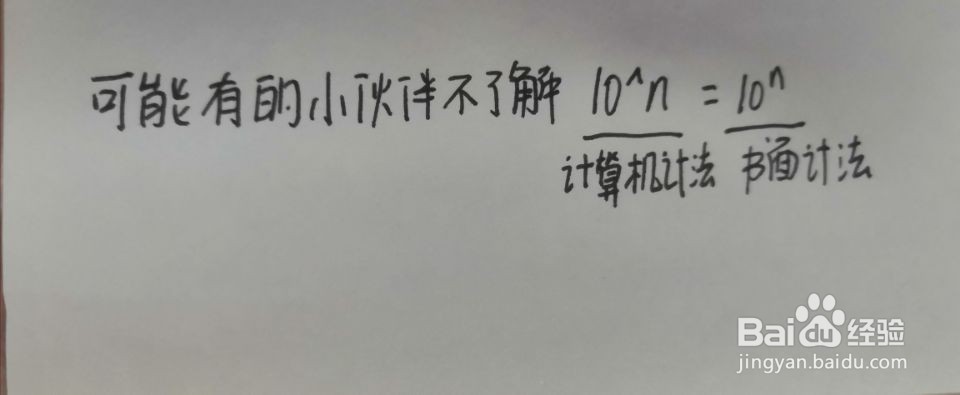 可能有的小伙伴不了解 10^n = 10ⁿ
计算机计法 书面计法
Baidu经验
jingyan.baidu.com